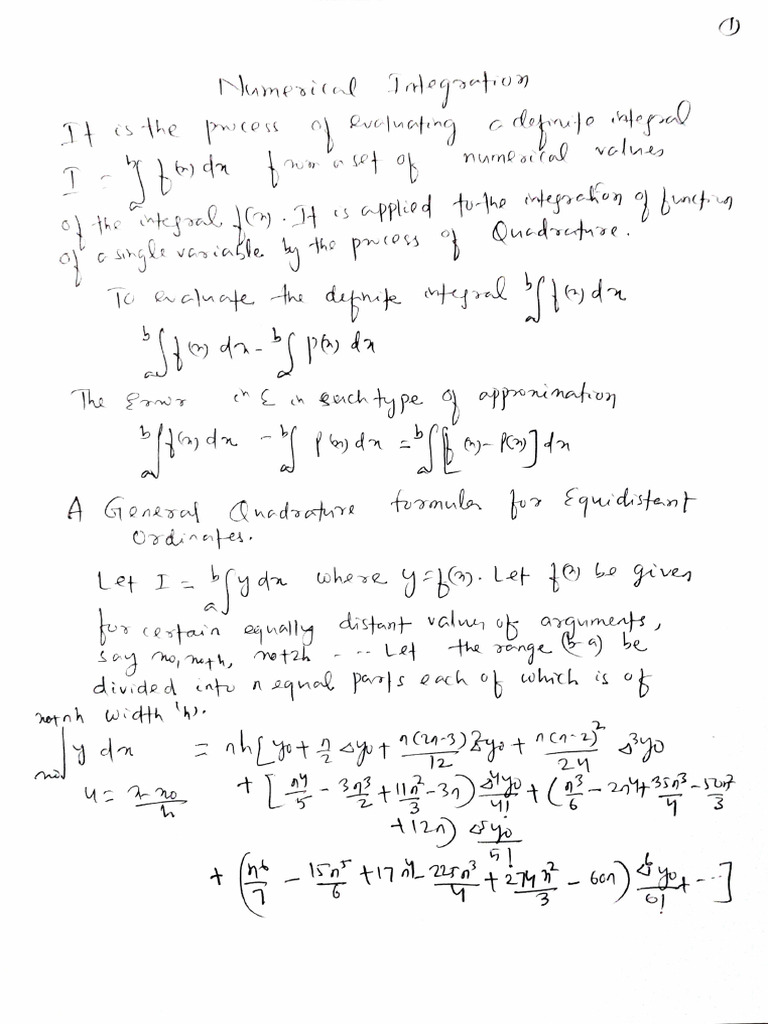 ①
Numerical Integration
It is the process of evaluating a definite integral
I = ∫ₐᵇ f(x) dx from a set of numerical values
of the integral f(x). It is applied to the integration of function
of a single variable by the process of Quadrature.
To evaluate the definite integral ∫ₐᵇ f(x) dx
∫ₐᵇ f(x) dx - ∫ₐᵇ P(x) dx
The Error in Ɛ in such type of approximation
∫ₐᵇ f(x) dx - ∫ₐᵇ P(x) dx = ∫ₐᵇ [f(x) - P(x)] dx
A General Quadrature formula for Equidistant
Ordinates.
Let I = ∫ₐᵇ y dx where y = f(x). Let f(x) be given
for certain equally distant values of arguments,
say x0, x0+h, x0+2h .... Let the range (b-a) be
divided into n equal parts each of which is of
width 'h'.
∫_{x0}^{x0+nh} y dx = nh[y0 + n/2 Δy0 + n(2n-3)/12 Δ²y0 + n(n-2)²/24 Δ³y0
u = (x-x0)/h + [n⁴/5 - 3n³/2 + 11n²/3 - 3n) Δ⁴y0/4! + (n⁵/6 - 2n⁴ + 35n³/4 - 50n²/3
+ 12n) Δ⁵y0/5!
+ (n⁶/7 - 15n⁵/6 + 17n⁴ - 225n³/4 + 274n²/3 - 60n) Δ⁶y0/6! + ---]